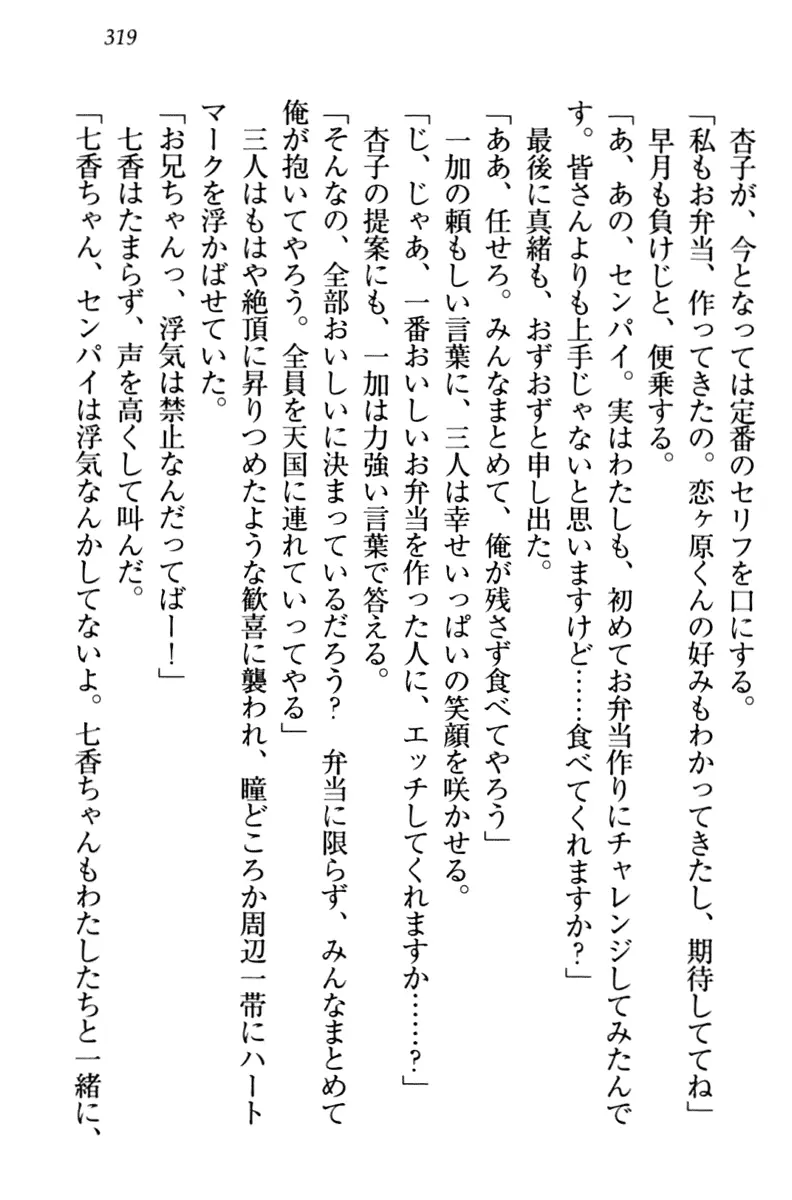 319
杏子が、今となっては定番のセリフを口にする。
「私もお弁当、作ってきたの。恋ヶ原くんの好みもわかってきたし、期待しててね」
早月も負けじと、便乗する。
「あ、あの、センパイ。実はわたしも、初めてお弁当作りにチャレンジしてみたんで
す。皆さんよりも上手じゃないと思いますけど……食べてくれますか？」
最後に真緒も、おずおずと申し出た。
「ああ、任せろ。みんなまとめて、俺が残さず食べてやろう」
一加の頼もしい言葉に、三人は幸せいっぱいの笑顔を咲かせる。
「じ、じゃあ、一番おいしいお弁当を作った人に、エッチしてくれますか……？」
杏子の提案にも、一加は力強い言葉で答える。
「そんなの、全部おいしいに決まっているだろう？　弁当に限らず、みんなまとめて
俺が抱いてやろう。全員を天国に連れていってやる」
三人はもはや絶頂に昇りつめたような歓喜に襲われ、瞳どころか周辺一帯にハート
マークを浮かばせていた。
「お兄ちゃんっ、浮気は禁止なんだってばー！」
七香はたまらず、声を高くして叫んだ。
「七香ちゃん、センパイは浮気なんかしてないよ。七香ちゃんもわたしたちと一緒に、